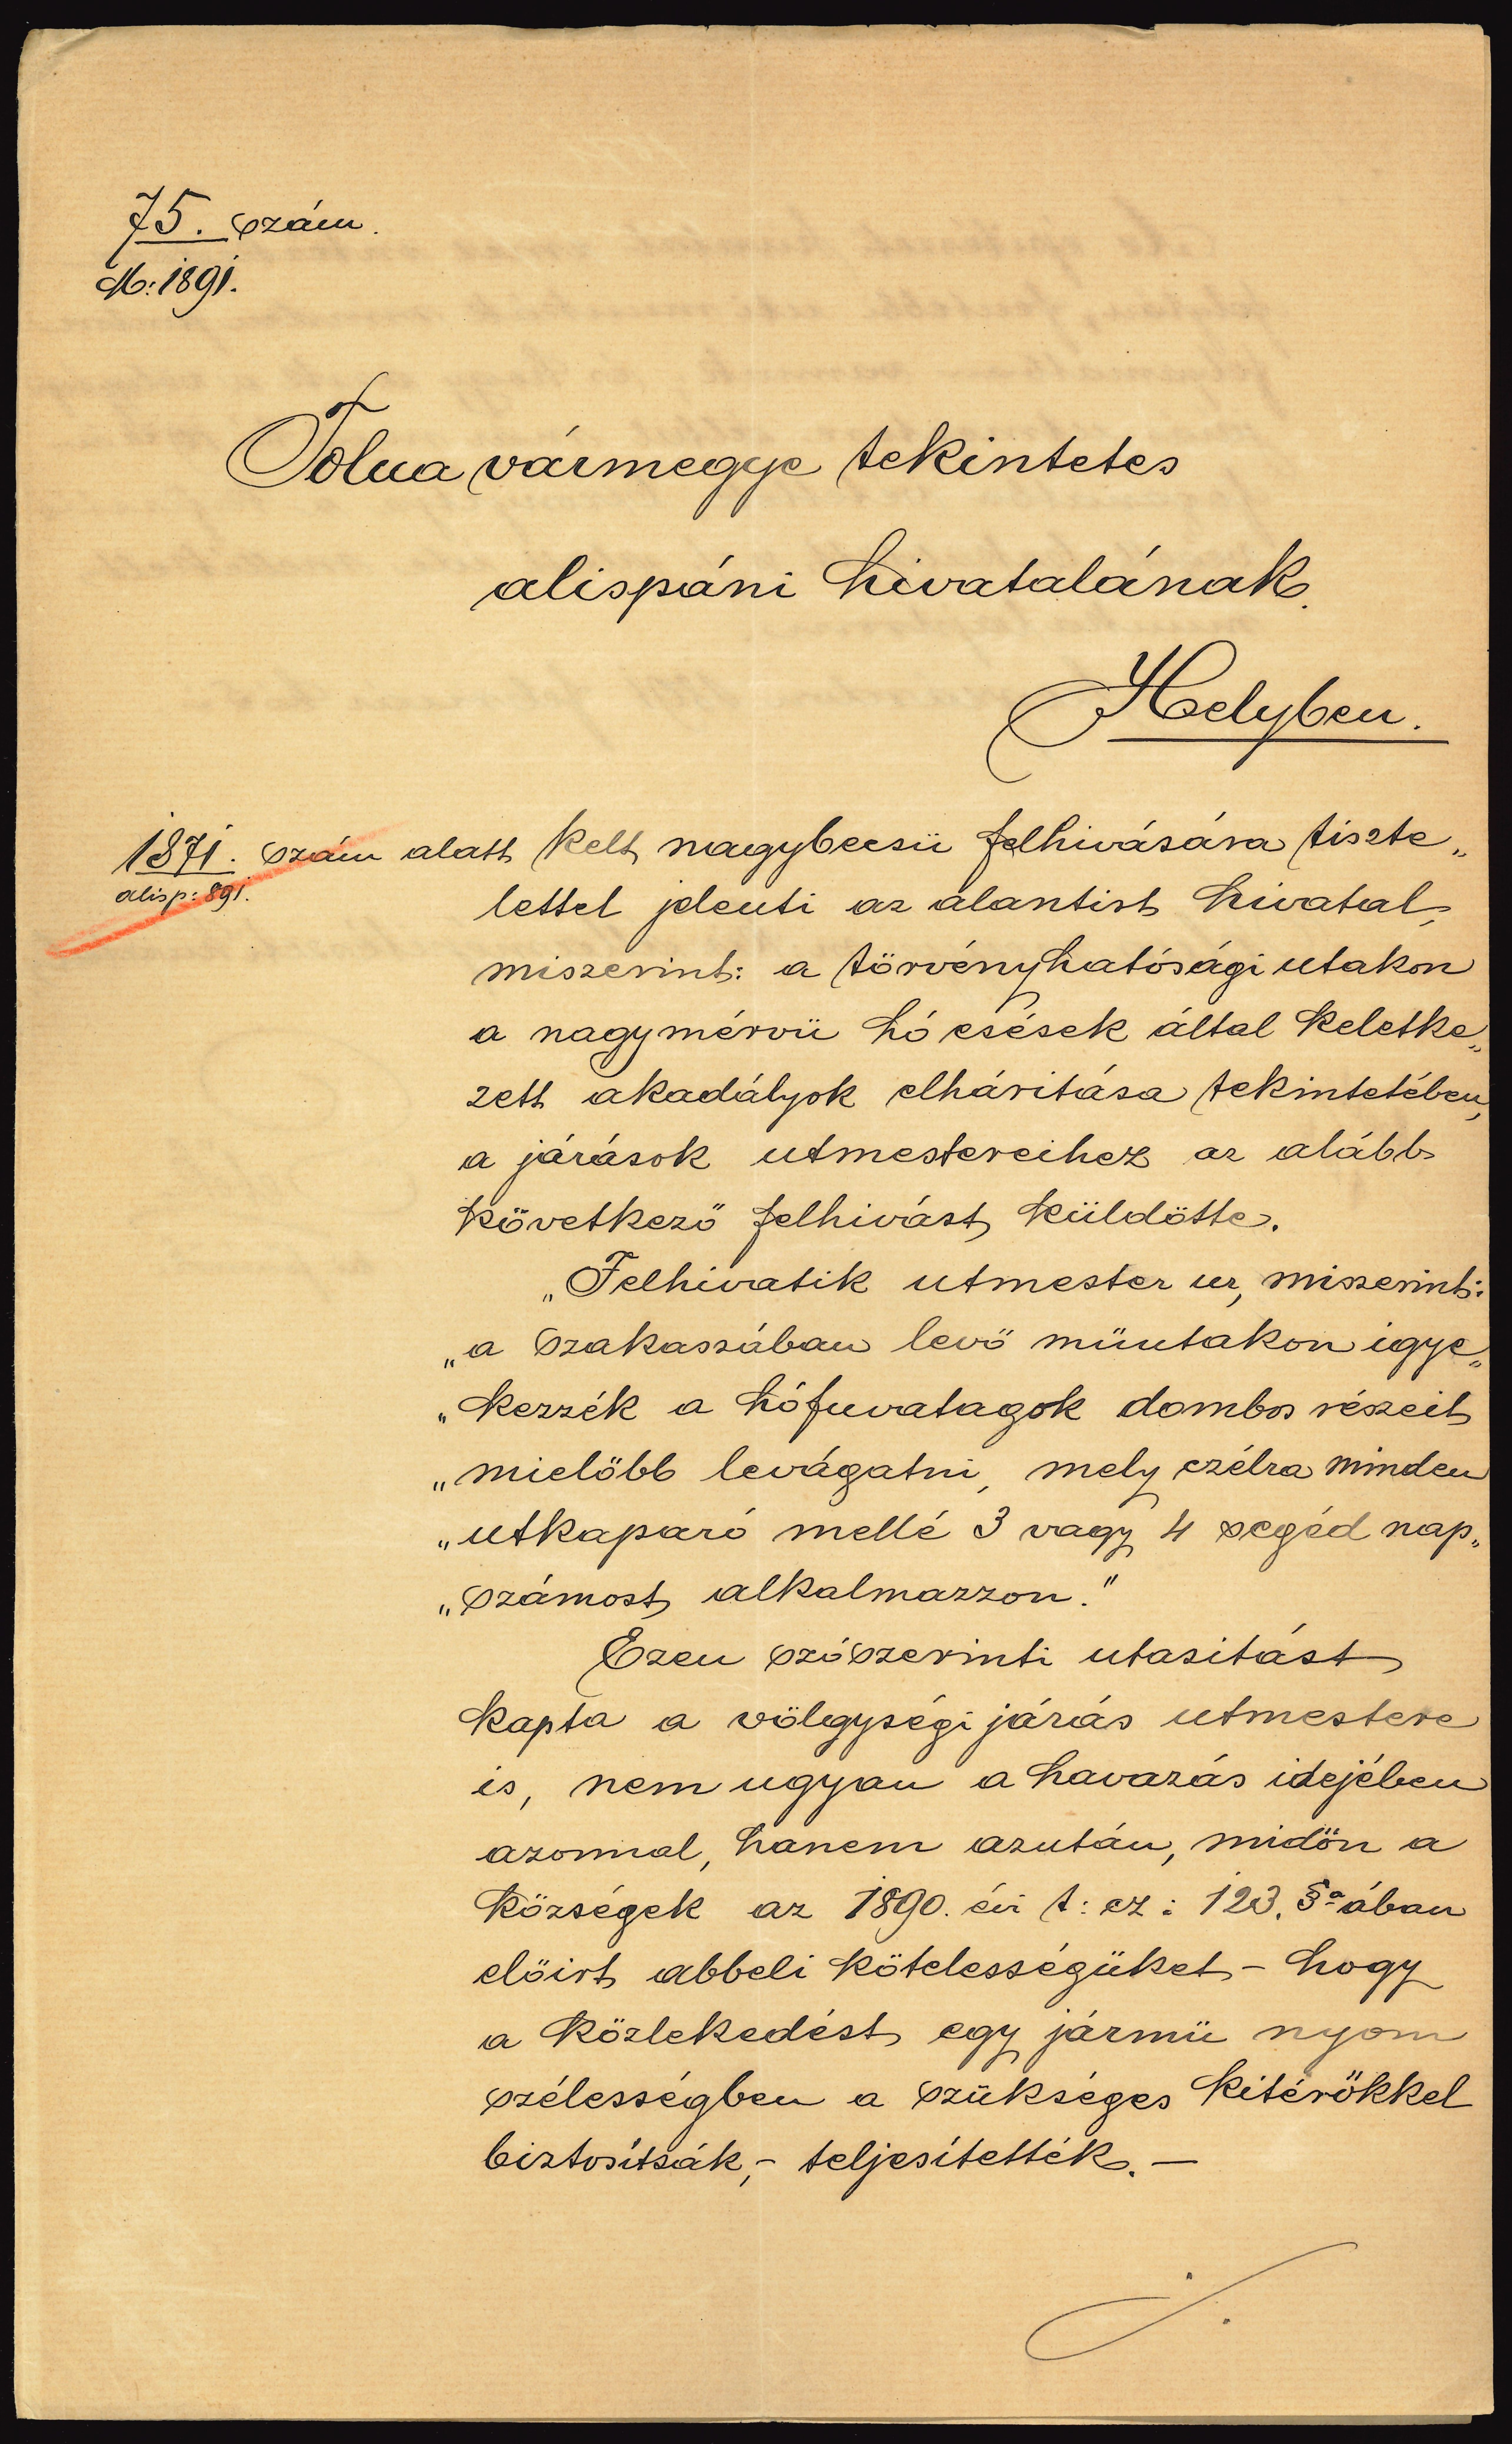 75. szám.
M: 1891.
Tolna vármegye tekintetes
alispáni hivatalának.
Helyben.
1871. szám alatt kelt nagybecsü felhivására tiszte„
alisp: 891.
lettel jelenti az alantirt hivatal,
miszerint: a törvényhatósági utakon
a nagymérvü hó esések által keletke„
zett akadályok elháritása tekintetében,
a járások utmestereihez az alább
következő felhivást küldötte.
„Felhivatik utmester ur, miszerint:
„a szakaszában levő müutakon igye„
„kezzék a hófuvatagok dombos részeit
„mielőbb levágatni, mely czélra minden
„utkaparó mellé 3 vagy 4 segéd nap„
„számost alkalmazzon."
Ezen szószerinti utasitást
kapta a völgységi járás utmestere
is, nem ugyan a havazás idejében
azonnal, hanem azután, midőn a
községek az 1890. évi t: cz: 123. §-ában
előirt abbeli kötelességüket - hogy
a közlekedést egy jármü nyom
szélességben a szükséges kitérőkkel
biztosítsák, - teljesítették. -